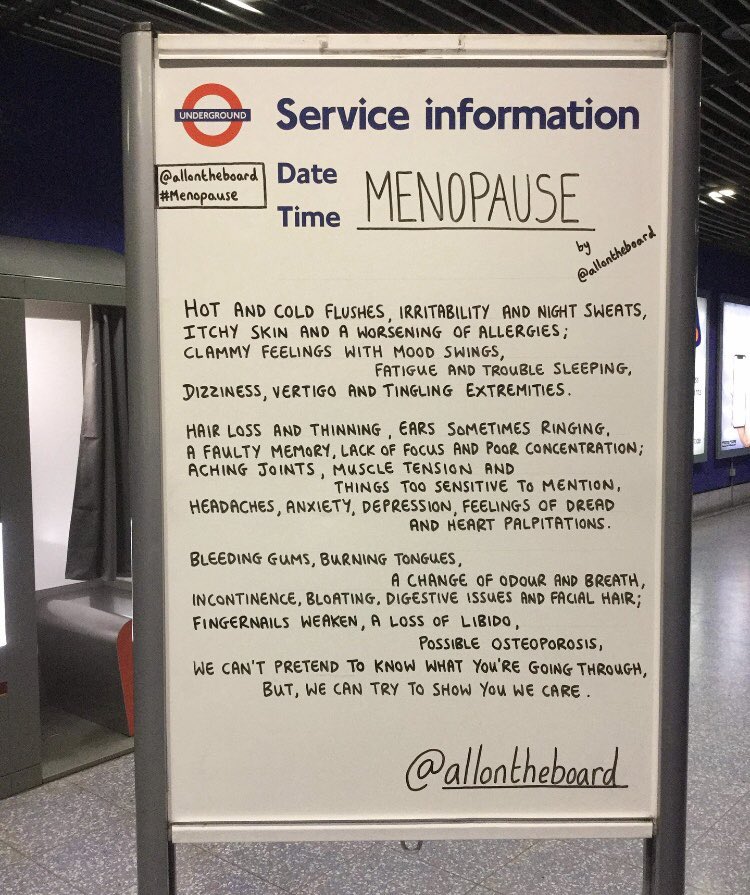 UNDERGROUND
Service information
@allontheboard
#Menopause
Date
Time
MENOPAUSE
by
@allontheboard
HOT AND COLD FLUSHES, IRRITABILITY AND NIGHT SWEATS,
ITCHY SKIN AND A WORSENING OF ALLERGIES;
CLAMMY FEELINGS WITH MOOD SWINGS,
FATIGUE AND TROUBLE SLEEPING,
DIZZINESS, VERTIGO AND TINGLING EXTREMITIES.
HAIR LOSS AND THINNING, EARS SOMETIMES RINGING,
A FAULTY MEMORY, LACK OF FOCUS AND POOR CONCENTRATION;
ACHING JOINTS, MUSCLE TENSION AND
THINGS TOO SENSITIVE TO MENTION,
HEADACHES, ANXIETY, DEPRESSION, FEELINGS OF DREAD
AND HEART PALPITATIONS.
BLEEDING GUMS, BURNING TONGUES,
A CHANGE OF ODOUR AND BREATH,
INCONTINENCE, BLOATING, DIGESTIVE ISSUES AND FACIAL HAIR;
FINGERNAILS WEAKEN, A LOSS OF LIBIDO,
POSSIBLE OSTEOPOROSIS,
WE CAN'T PRETEND TO KNOW WHAT YOU'RE GOING THROUGH,
BUT, WE CAN TRY TO SHOW YOU WE CARE.
@allontheboard